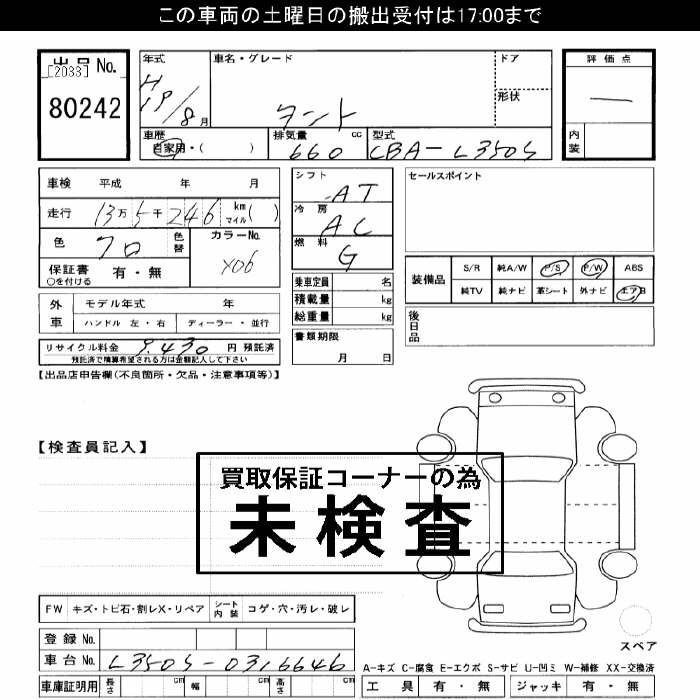 この車両の土曜日の搬出受付は17:00まで
出品 No.
[2033]
80242
年式
H19/8月
車名・グレード
タント
ドア
形状
評価点
—
内装
車歴
自家用・( )
排気量 cc
660
型式
CBA-L350S
車検 平成 年 月
走行 13万5千246 km マイル( )
色 クロ 色替
カラーNo.
X06
保証書 ○を付ける 有・無
シフト AT
冷房 AC
燃料 G
セールスポイント
装備品
S/R 純A/W P/S P/W ABS
純TV 純ナビ 革シート 外ナビ エアB
外車
モデル年式 年
ハンドル 左・右 ディーラー・並行
乗車定員 名
積載量 kg
総重量 kg
後日品
リサイクル料金 9,430 円 預託済
預託済で精算希望される方は金額記入して下さい
書類期限
月 日
【出品店申告欄(不良箇所・欠品・注意事項等)】
【検査員記入】
買取保証コーナーの為
未検査
FW キズ・トビ石・割レX・リペア シート内装 コゲ・穴・汚レ・破レ
登録 No.
車台 No. L350S-0316646
車庫証明用 長さ cm 幅 cm 高さ cm
スペア
A-キズ C-腐食 E-エクボ S-サビ U-凹ミ W-補修 XX-交換済
工具 有・無 ジャッキ 有・無